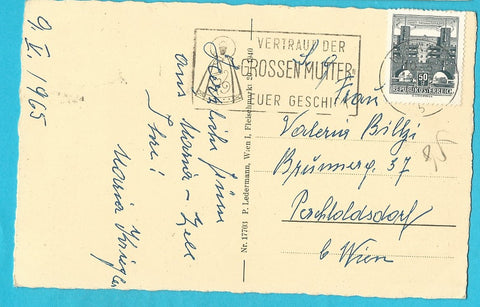 9. V. 1965
Herzliche Grüße
aus Maria-Zell
Ihre
Maria
VERTRAUT DER
GROSSEN MUTTER
EUER GESCHI
50 g
REPUBLIK ÖSTERREICH
Nr. 17763 P. Ledermann, Wien I, Fleischmarkt
S. g.
Frau
Valerie Bilgi
Brunnerg. 37
Perchtoldsdorf
b. Wien